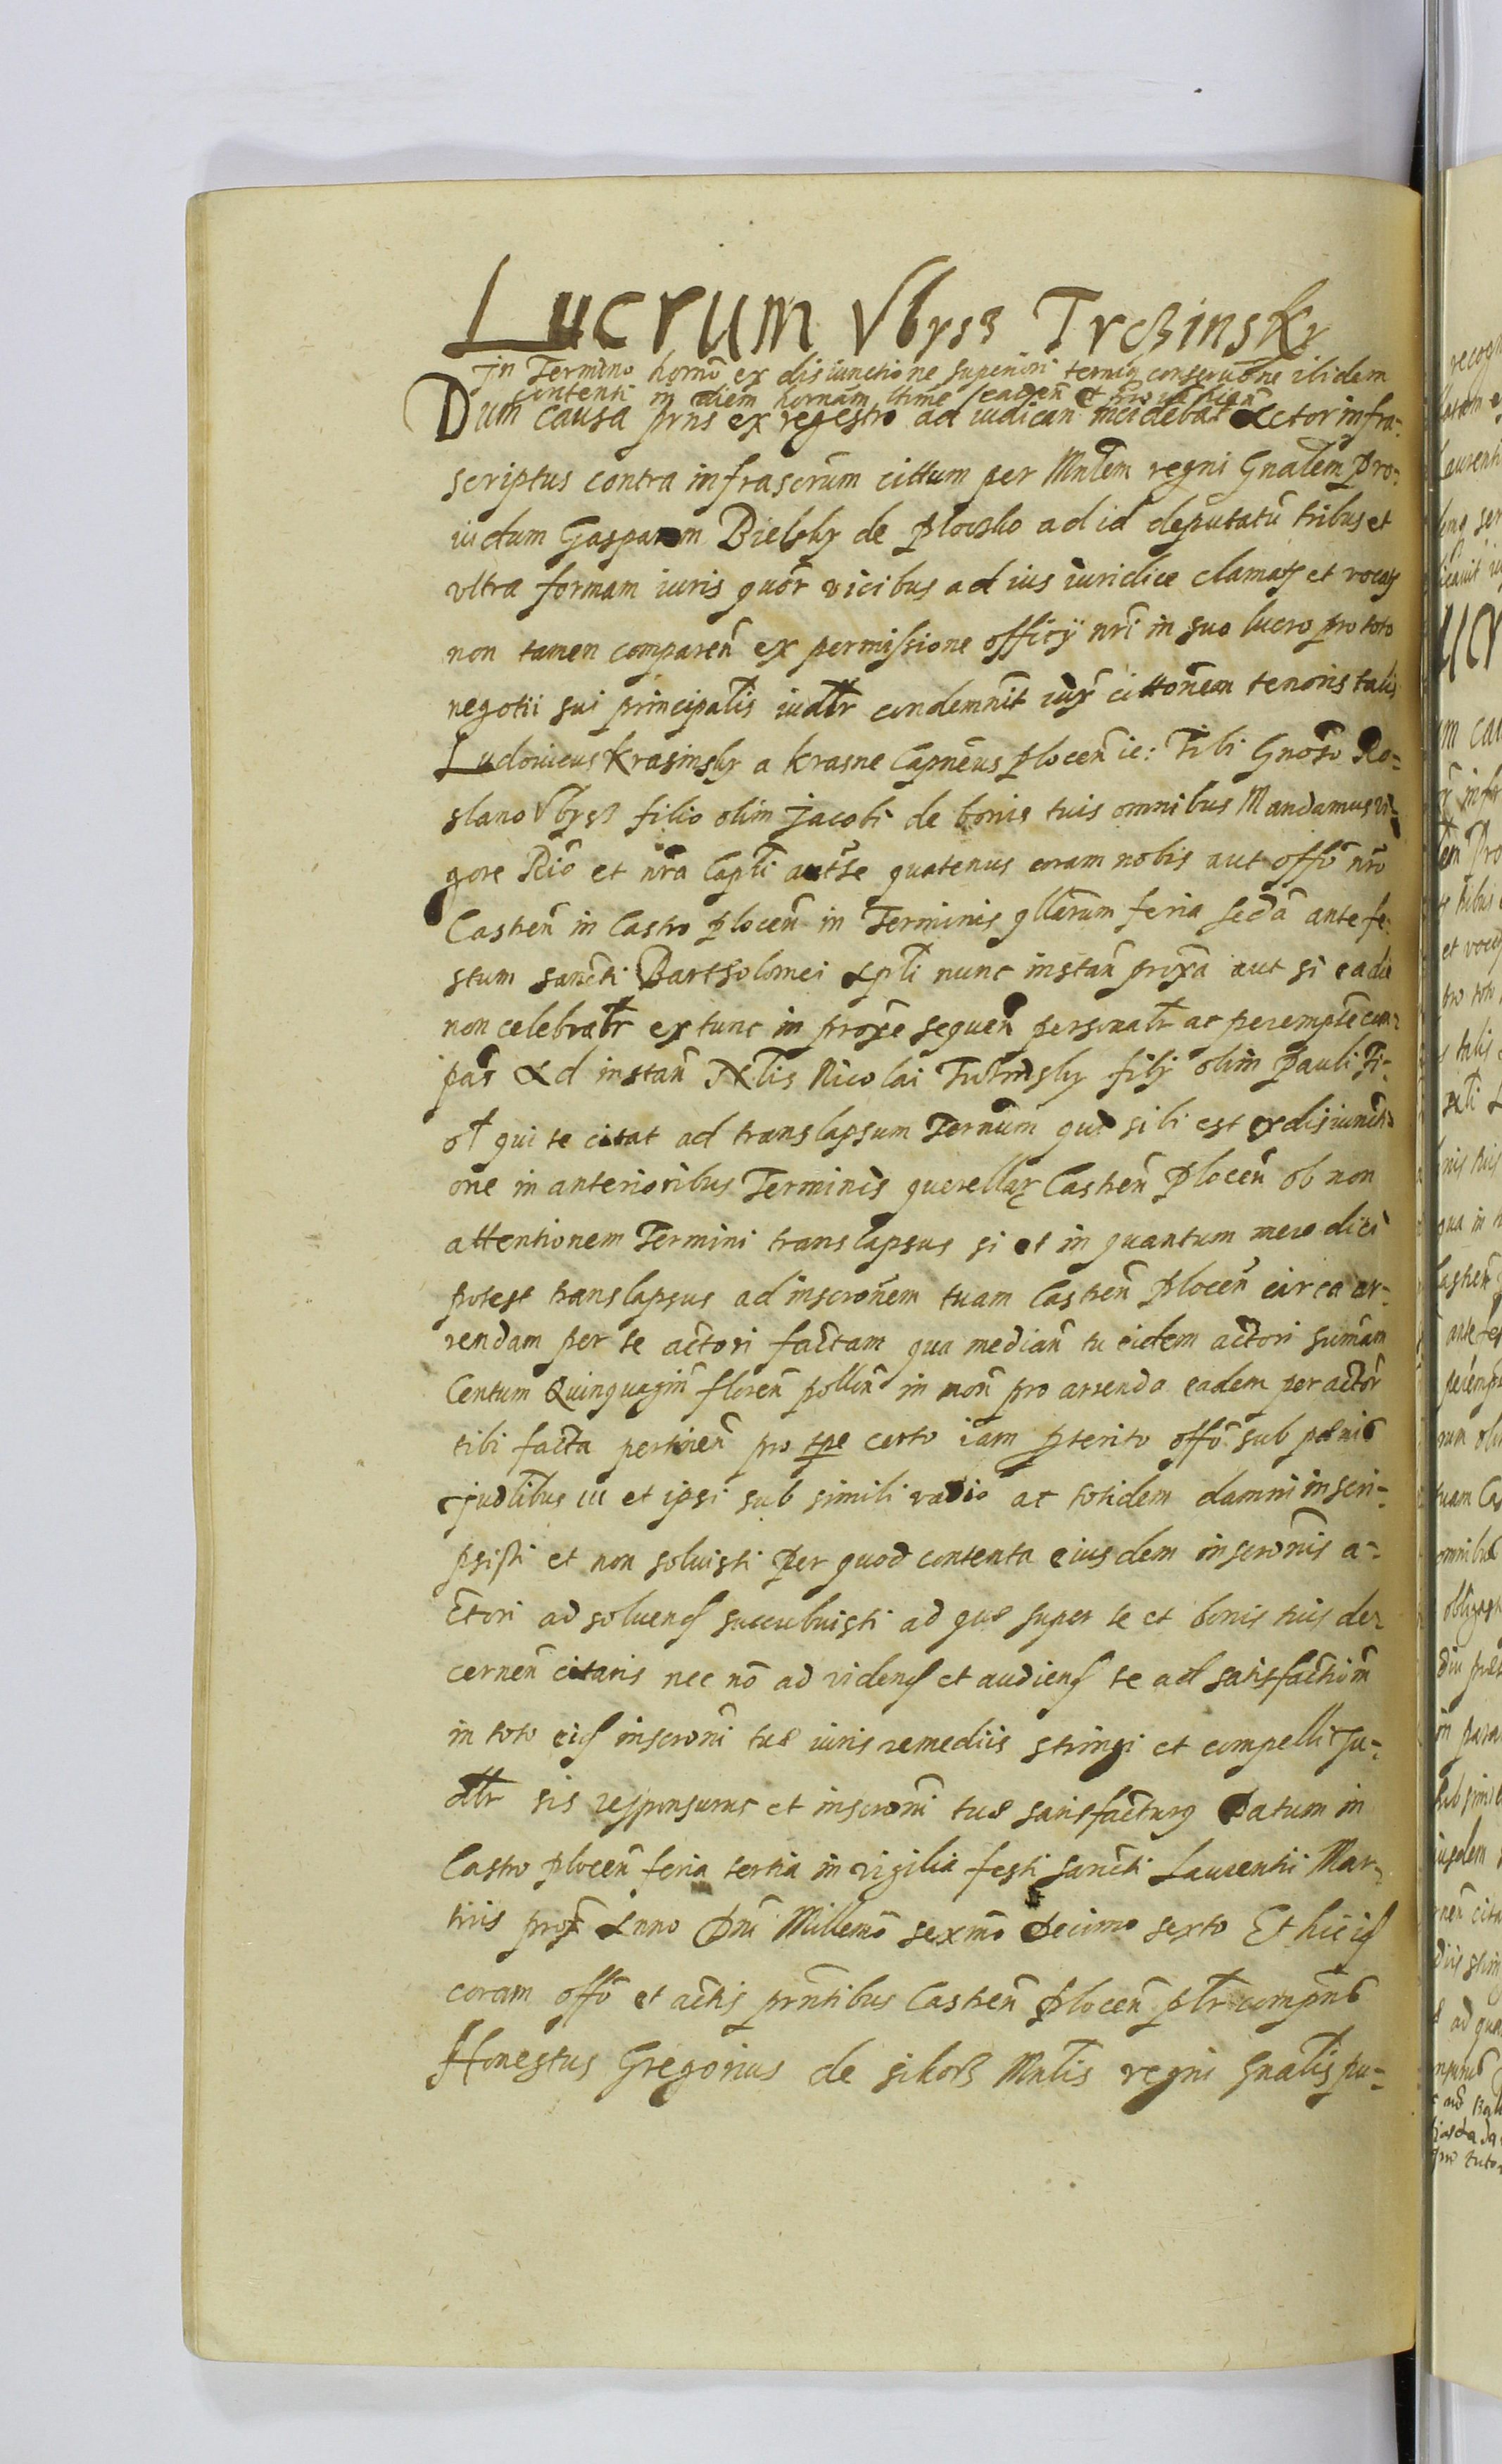 Lucrum Vbysz Trczinsky
jn Termino horno ex disiunctione superiori termin conseruone ibidem
contenti in diem hornam ltime caden et
Dum causa prns ex regestro ad iudican incidebat Actor infra-
scriptus contra infrascrum cittum per Mnlem regni Gnalem Pro-
uidum Gasparem Bielsky de Plocsko ad id deputatu tribus et
vltra formam iuris quor vicibus ad ius iuridice clamat et vocat
non tamen comparen ex permissione officy nri in suo lucro pro toto
negotii sui principalis iudlr condemnit iux cittonem tenoris talis
Ludouicus Krasinsky a Krasne Capneus Plocen ic: Tibi Gnoso Ro-
slano Vbysz filio olim Jacobi de bonis tuis omnibus Mandamus vi-
gore Rio et nra Capli autte quatenus coram nobis aut offo nro
Castren in Castro Plocen in Terminis qllarum feria secda ante fe-
stum sancti Bartholomei Apli nunc instan proxa aut si eadie
non celebrabr extunc in proxe sequen personalr ac perempte com-
pas Ad instan Nlis Nicolai filij olim Pauli Ti-
bi qui te citat ad translapsum Ternum que sibi est ex disiuncti-
one in anterioribus Terminis querellar Castren Plocen ob non
attentionem Termini translapsus si et in quantum mere dici
potest translapsus ad inscronem tuam Castren Plocen circa ar-
rendam per te actori factam qua median tu eidem actori sumam
Centum Quinquagin floren pollin in mon pro arrenda eadem per actor
tibi facta pertinen pro tpe certo iam pterito offo sub paenis
judlibus iii et ipsi sub simili vadio ac totidem damni inscri-
psisti et non soluisti Per quod contenta eiusdem inscronis a-
ctori ad soluend succubuisti ad que super te et bonis tuis de-
cernen citaris nec no ad vidend et audiend te ad satisfactiom
in toto eid inscroni tue iuris remediis stringi et compelli Ju-
dlr sis responsurus et inscroni tue satisfacturus Datum in
Castro Plocen feria tertia in vigilia festi sancti Laurentii Mar-
tiris prox Anno Dni Millemo sexmo Decimo sexto Et hic id
coram offo et actis prntibus Castren Plocen plr compns
Honestus Gregorius de sikorz Mnlis regni gnalis pu-